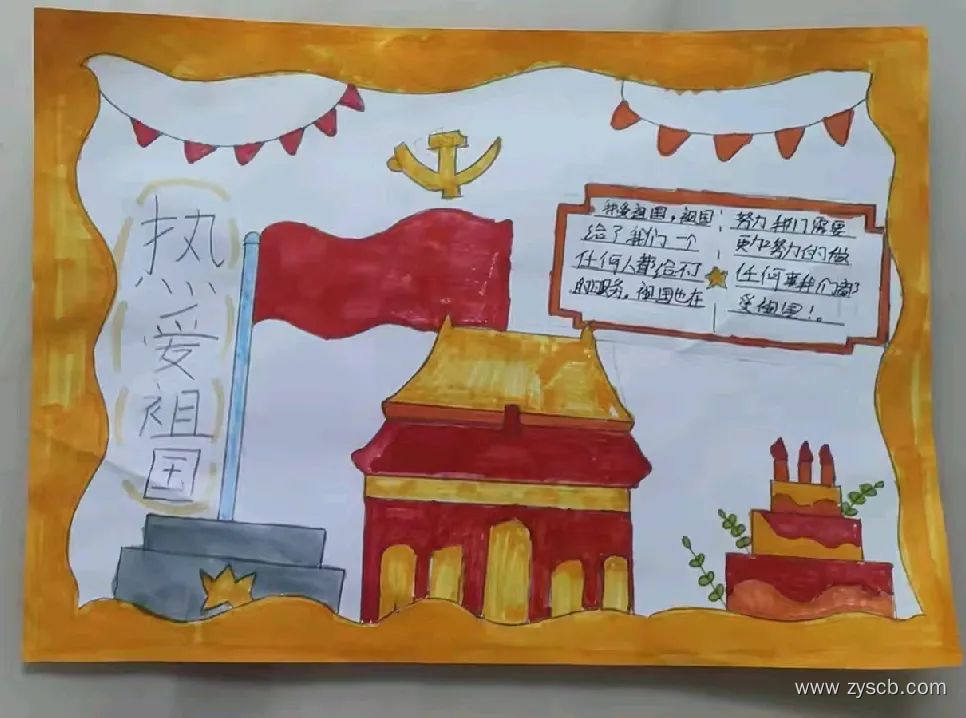 热
爱
祖
国
我爱祖国,祖国
给了我们一个
任何人費给不了
的服务,祖国也在
努力我们需要
更加努力的做
任何事我们都
爱祖国!。
www zyscb.com